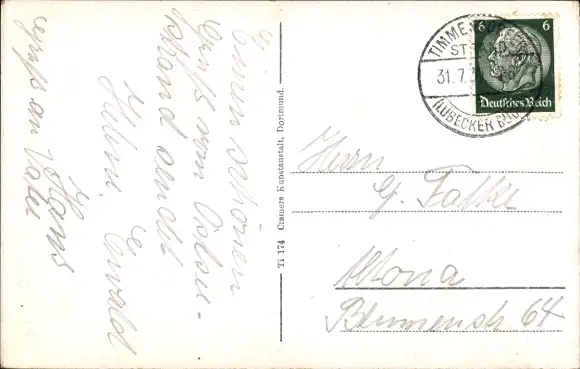 Einen schönen
Gruß vom Ostsee-
strand sendet
Ewald
Gruß an Vater
Hans
Ti 174 Cramers Kunstanstalt, Dortmund.
TIMMENDORFER
STRAND
31.7.
(LÜBECKER BUCHT)
6 6
Deutsches Reich
Herrn
G. Falke
Altona
Blumenstr 64